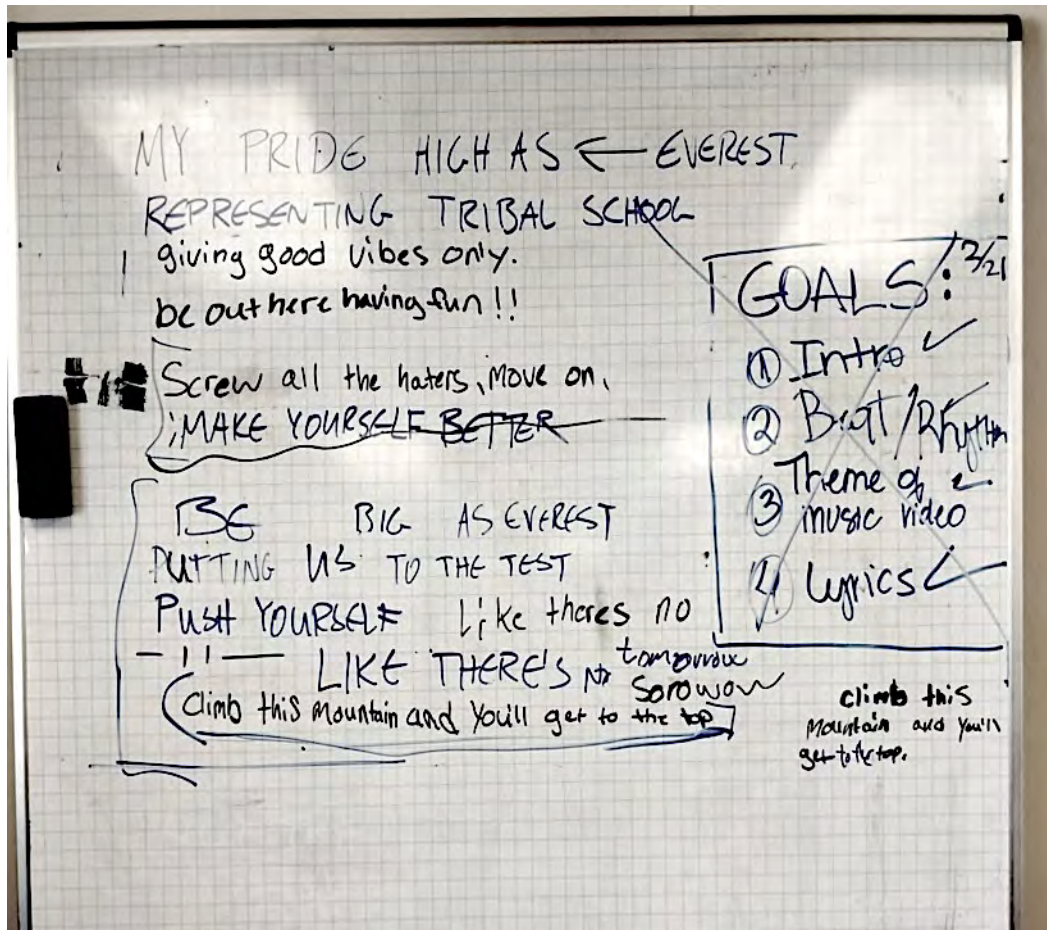 MY PRIDE HIGH AS ← EVEREST.
REPRESENTING TRIBAL SCHOOL
giving good vibes only.
be out here having fun!!
Screw all the haters, move on,
MAKE YOURSELF BETTER
BE BIG AS EVEREST
PUTTING US TO THE TEST
PUSH YOURSELF Like theres no
tomorrow
— 11 — LIKE THERE'S no
sorowow
Climb this mountain and you'll get to the top
GOALS: 3/21
① Intro ✓
② Beat/Rhythm
③ Theme of ✓
music video
④ Lyrics ✓
climb this
mountain and you'll
get to the top.